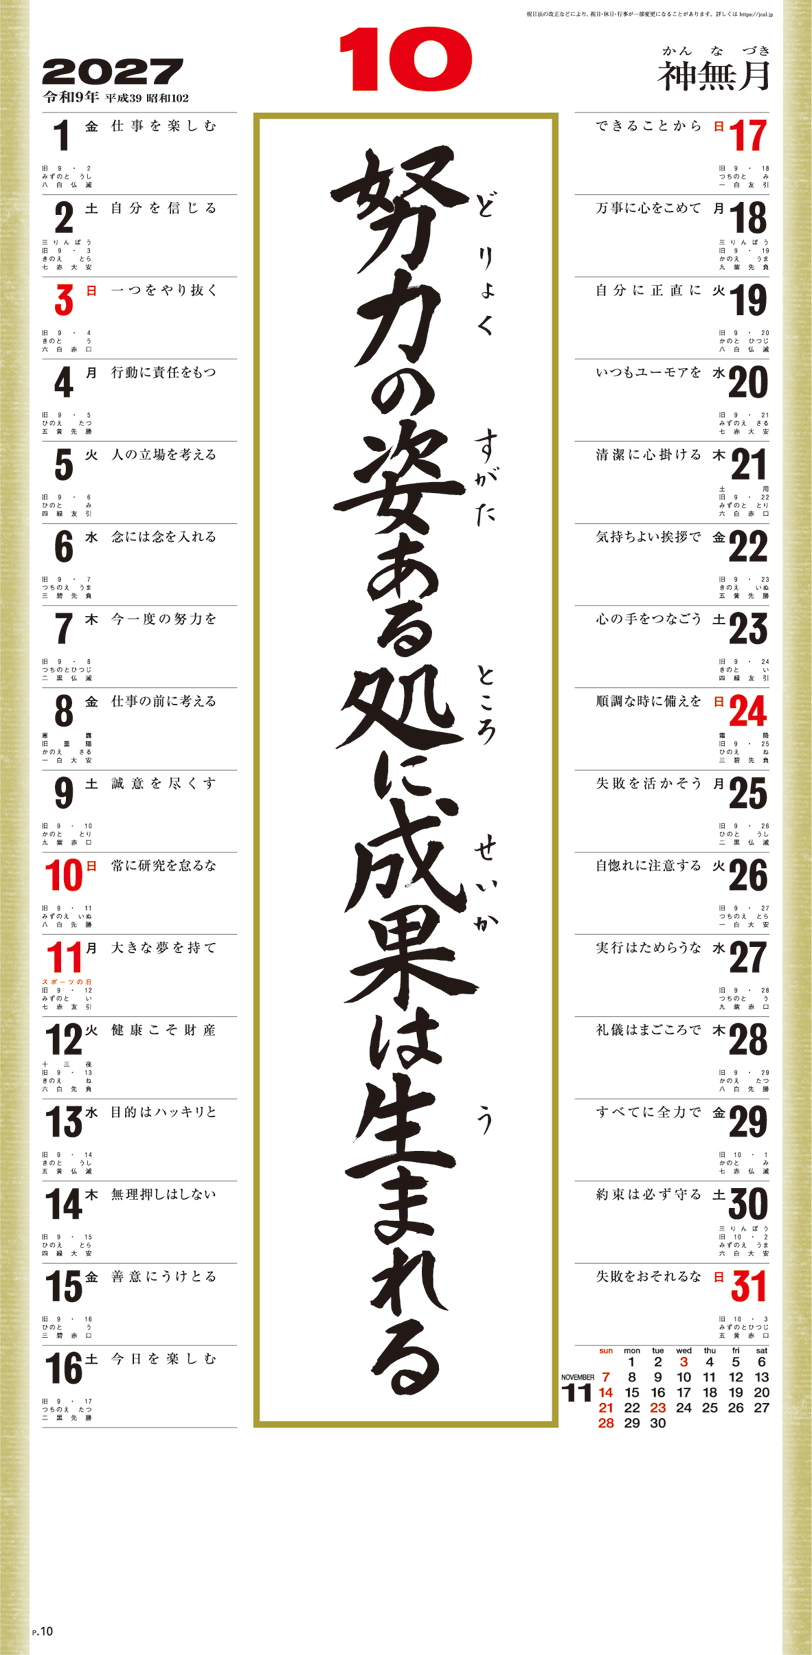 祝日法の改正などにより、祝日・休日・行事が一部変更になることがあります。詳しくは https://jcal.jp
2027
令和9年 平成39 昭和102
10
かんなづき
神無月
努力の姿ある処に成果は生まれる
どりょく
すがた
ところ
せいか
う
1 金 仕事を楽しむ
旧 9・2
みずのと うし
八白仏滅
2 土 自分を信じる
三りんぼう
旧 9・3
きのえ とら
七赤大安
3 日 一つをやり抜く
旧 9・4
きのと う
六白赤口
4 月 行動に責任をもつ
旧 9・5
ひのえ たつ
五黄先勝
5 火 人の立場を考える
旧 9・6
ひのと み
四緑友引
6 水 念には念を入れる
旧 9・7
つちのえ うま
三碧先負
7 木 今一度の努力を
旧 9・8
つちのとひつじ
二黒仏滅
8 金 仕事の前に考える
寒露
旧重陽
かのえ さる
一白大安
9 土 誠意を尽くす
旧 9・10
かのと とり
九紫赤口
10 日 常に研究を怠るな
旧 9・11
みずのえ いぬ
八白先勝
11 月 大きな夢を持て
スポーツの日
旧 9・12
みずのと い
七赤友引
12 火 健康こそ財産
十三夜
旧 9・13
きのえ ね
六白先負
13 水 目的はハッキリと
旧 9・14
きのと うし
五黄仏滅
14 木 無理押しはしない
旧 9・15
ひのえ とら
四緑大安
15 金 善意にうけとる
旧 9・16
ひのと う
三碧赤口
16 土 今日を楽しむ
旧 9・17
つちのえ たつ
二黒先勝
できることから 日 17
旧 9・18
つちのと み
一白友引
万事に心をこめて 月 18
三りんぼう
旧 9・19
かのえ うま
九紫先負
自分に正直に 火 19
旧 9・20
かのと ひつじ
八白仏滅
いつもユーモアを 水 20
旧 9・21
みずのえ さる
七赤大安
清潔に心掛ける 木 21
土用
旧 9・22
みずのと とり
六白赤口
気持ちよい挨拶で 金 22
旧 9・23
きのえ いぬ
五黄先勝
心の手をつなごう 土 23
旧 9・24
きのと い
四緑友引
順調な時に備えを 日 24
霜降
旧 9・25
ひのえ ね
三碧先負
失敗を活かそう 月 25
旧 9・26
ひのと うし
二黒仏滅
自惚れに注意する 火 26
旧 9・27
つちのえ とら
一白大安
実行はためらうな 水 27
旧 9・28
つちのと う
九紫赤口
礼儀はまごころで 木 28
旧 9・29
かのえ たつ
八白先勝
すべてに全力で 金 29
旧 10・1
かのと み
七赤仏滅
約束は必ず守る 土 30
三りんぼう
旧 10・2
みずのえ うま
六白大安
失敗をおそれるな 日 31
旧 10・3
みずのとひつじ
五黄赤口
NOVEMBER
11
sun mon tue wed thu fri sat
1 2 3 4 5 6
7 8 9 10 11 12 13
14 15 16 17 18 19 20
21 22 23 24 25 26 27
28 29 30
P.10